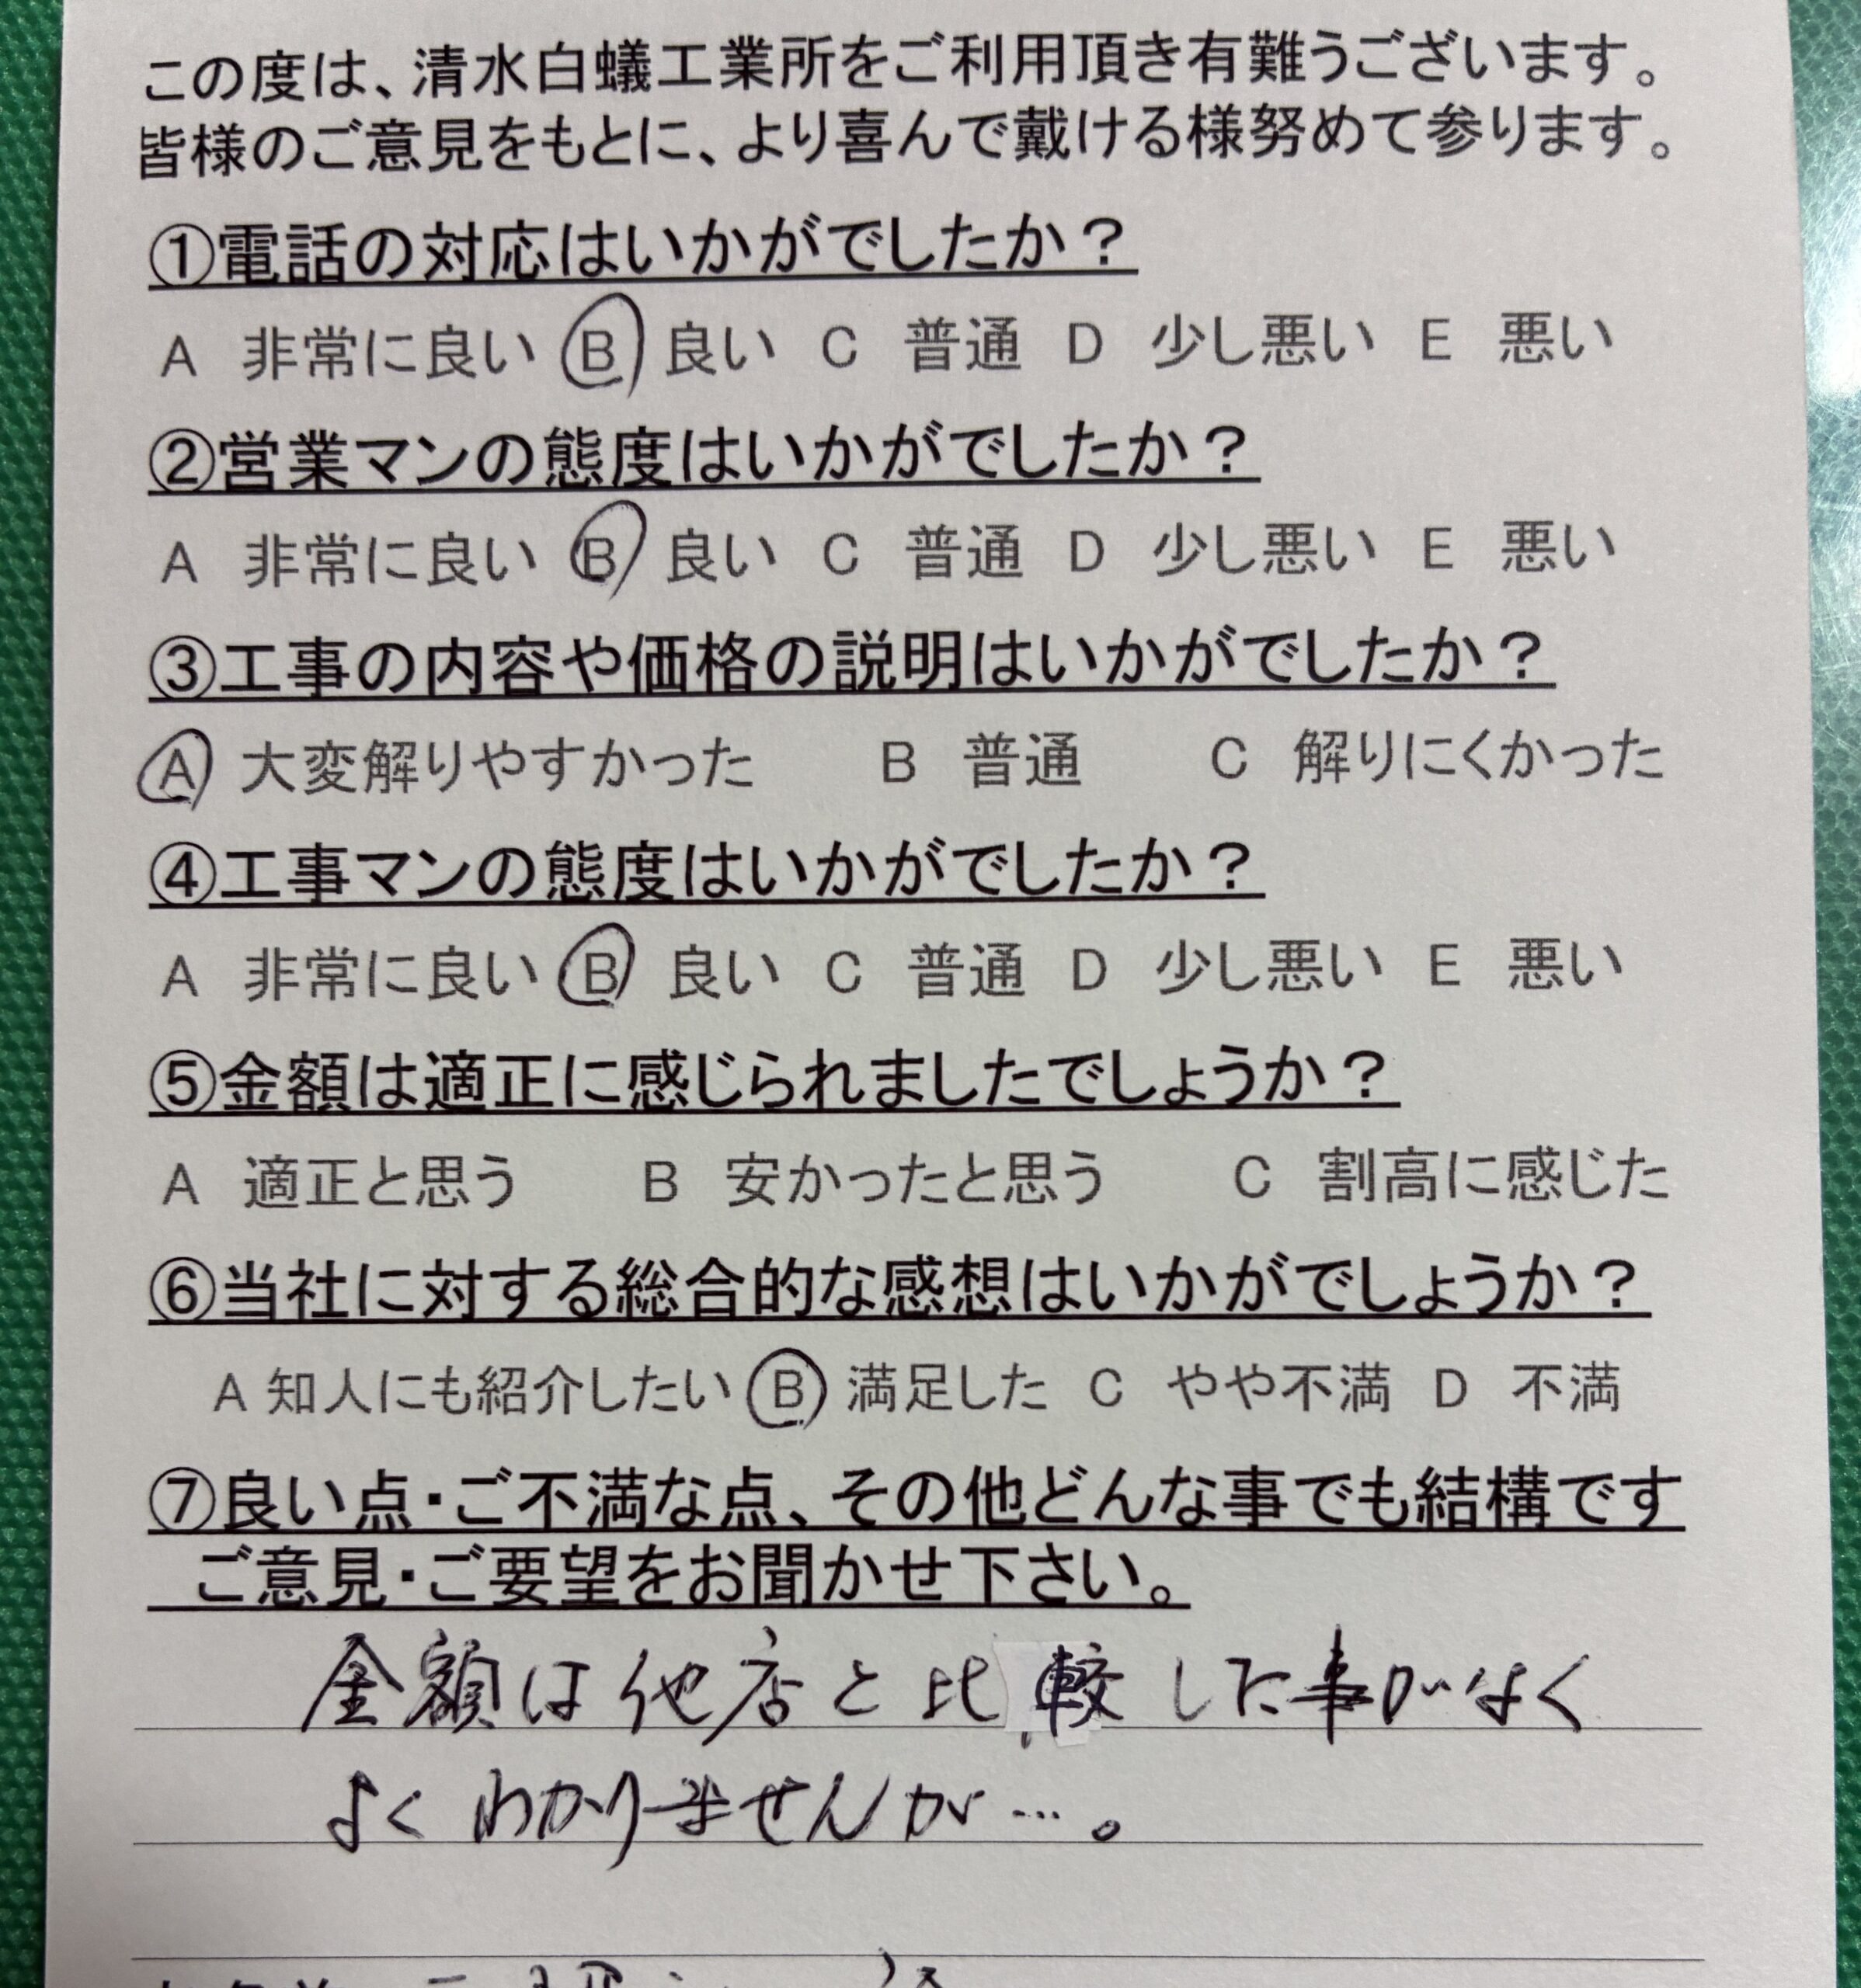 この度は、清水白蟻工業所をご利用頂き有難うございます。
皆様のご意見をもとに、より喜んで戴ける様努めて参ります。
①電話の対応はいかがでしたか？
A 非常に良い B 良い C 普通 D 少し悪い E 悪い
②営業マンの態度はいかがでしたか？
A 非常に良い B 良い C 普通 D 少し悪い E 悪い
③工事の内容や価格の説明はいかがでしたか？
A 大変解りやすかった B 普通 C 解りにくかった
④工事マンの態度はいかがでしたか？
A 非常に良い B 良い C 普通 D 少し悪い E 悪い
⑤金額は適正に感じられましたでしょうか？
A 適正と思う B 安かったと思う C 割高に感じた
⑥当社に対する総合的な感想はいかがでしょうか？
A 知人にも紹介したい B 満足した C やや不満 D 不満
⑦良い点・ご不満な点、その他どんな事でも結構です
ご意見・ご要望をお聞かせ下さい。
金額は他店と比較した事がなく
よくわかりませんが…。